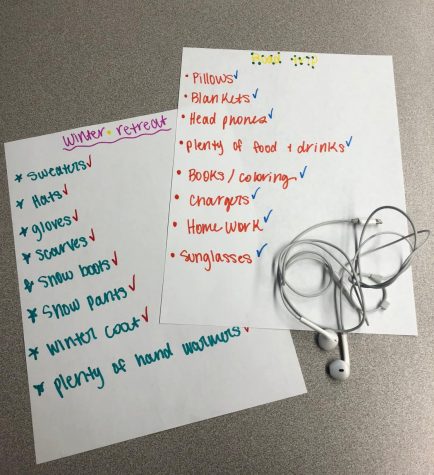 Winter retreat
* Sweaters ✓
* Hats ✓
* gloves ✓
* Scarves ✓
* Snow boots ✓
* Snow pants ✓
* Winter coat ✓
* plenty of hand warmers ✓
• Pillows ✓
• Blankets ✓
• Head phones ✓
• plenty of food + drinks ✓
• Books/coloring ✓
• Chargers ✓
• Home Work ✓
• Sunglasses ✓